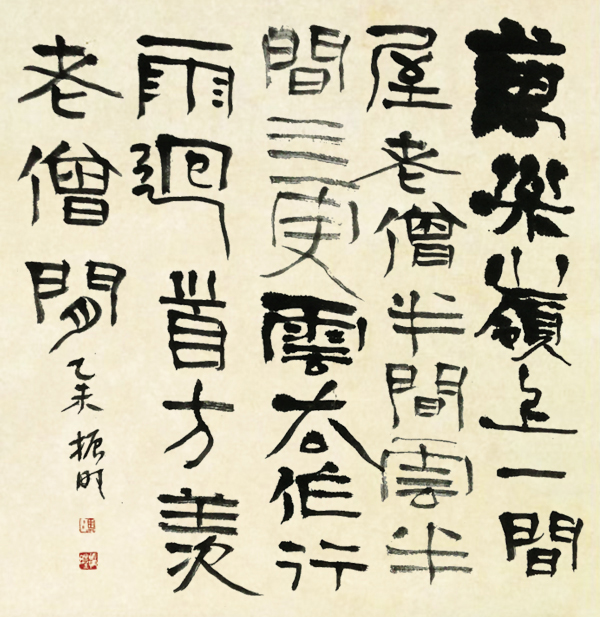 萬松嶺上一間
屋老僧半間雲半
間三更雲去作行
雨迴首方羨
老僧閒
乙未振